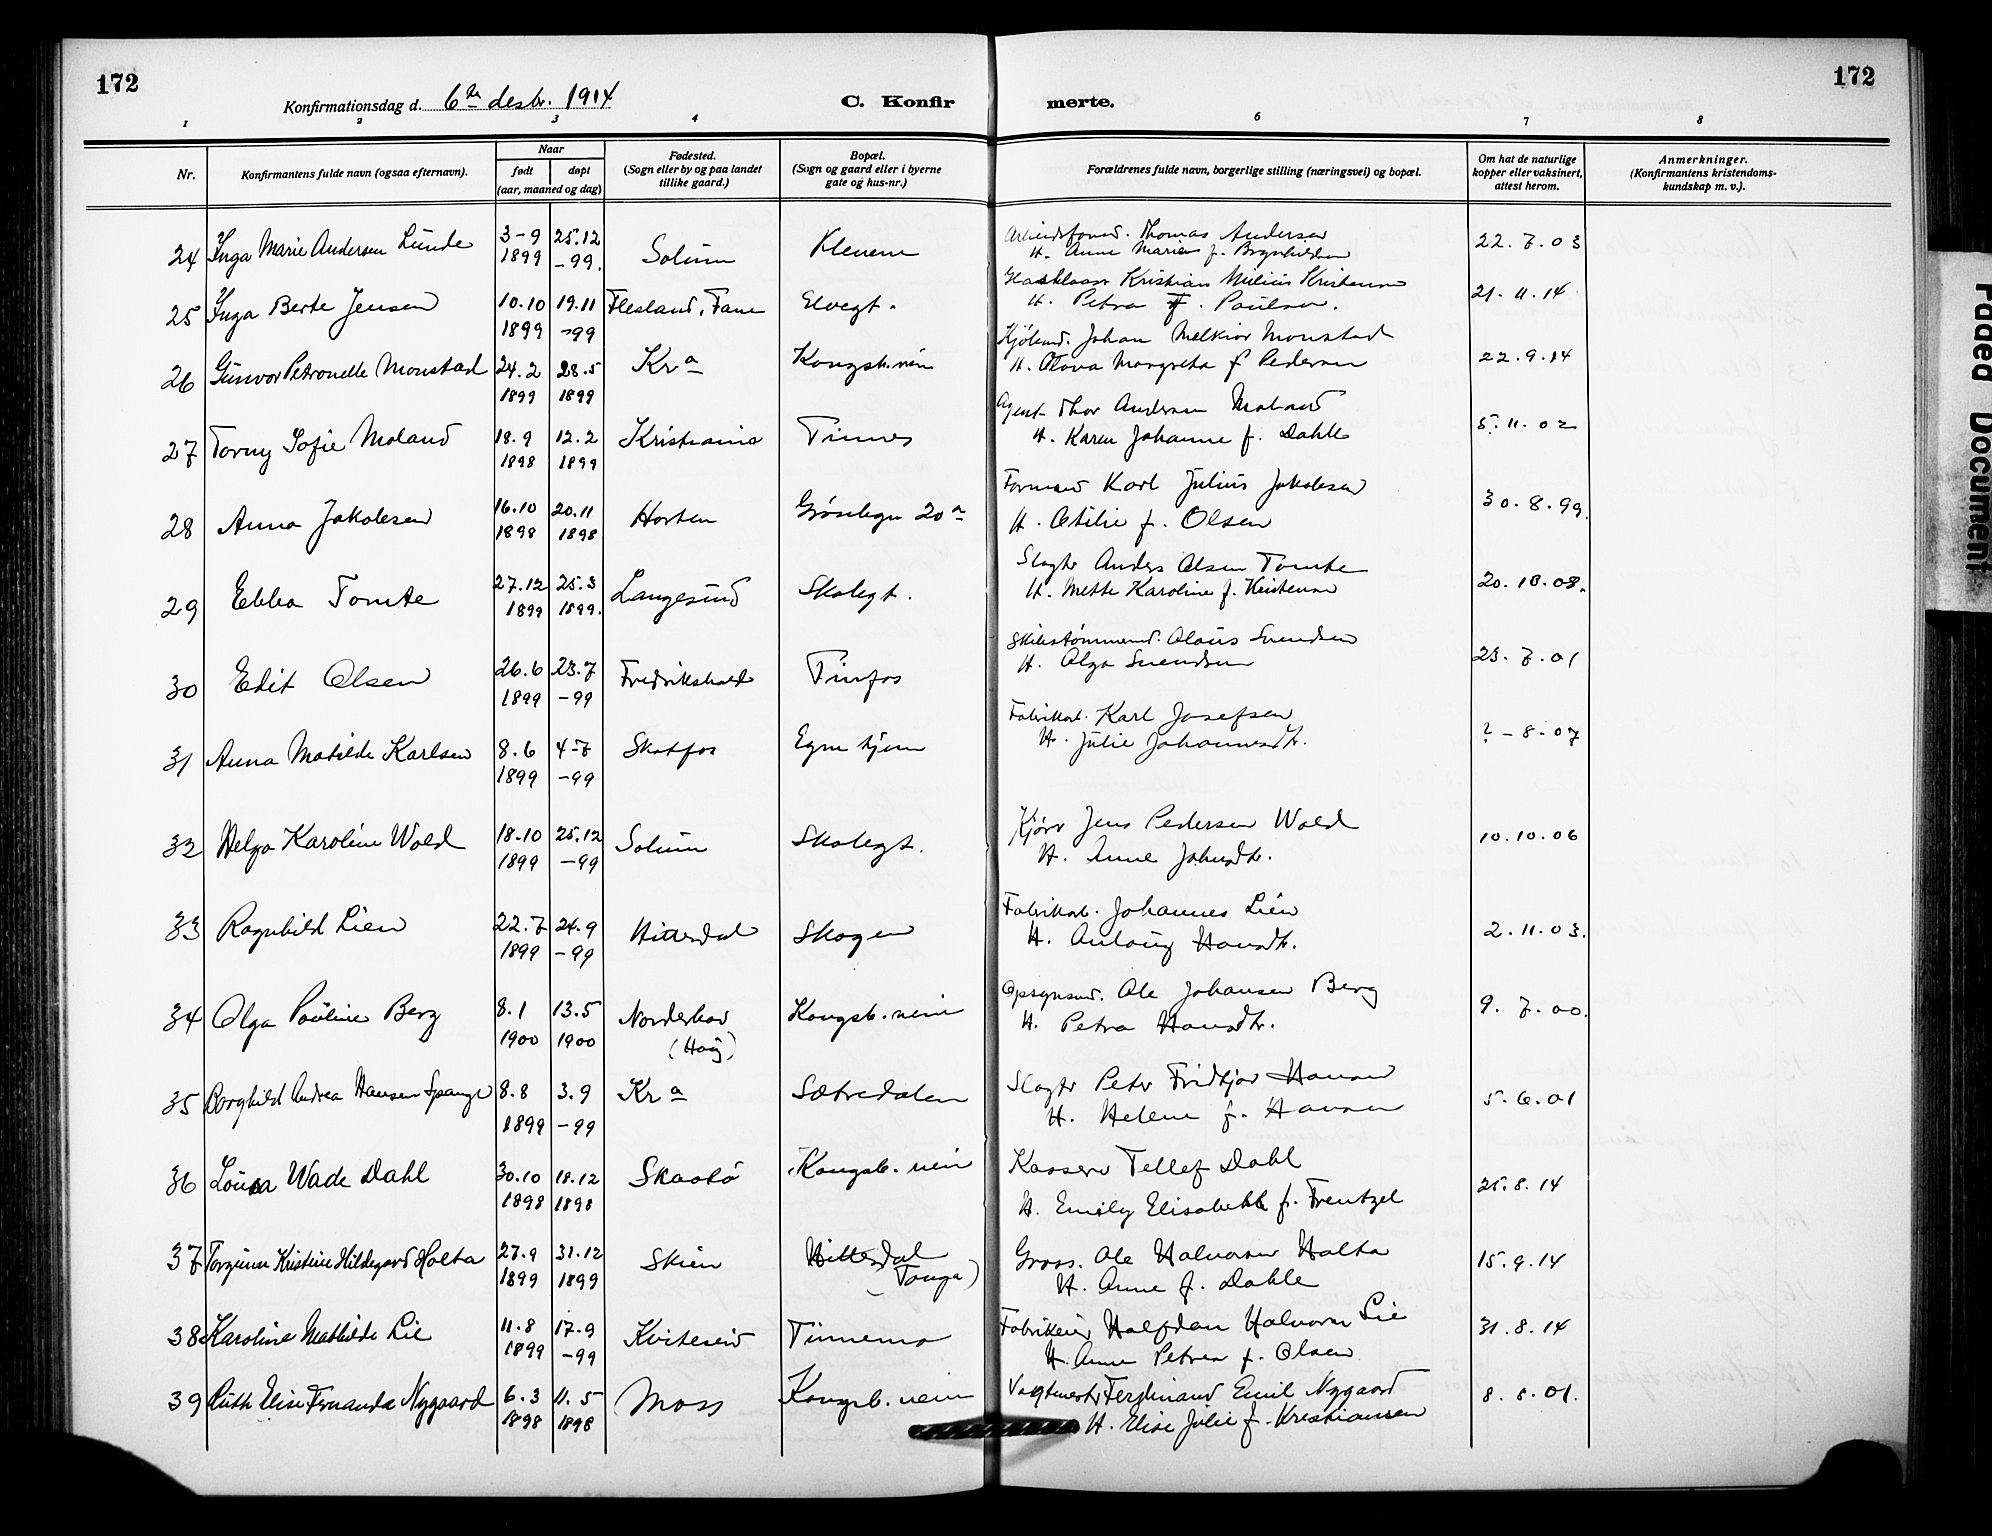 172
172
Konfirmationsdag d. 6te desbr. 1914
C. Konfir merte.
1 2 3 4 6 7 8
Nr.
Konfirmantens fulde navn (ogsaa efternavn).
Naar
født døpt
(aar, maaned og dag)
Fødested.
(Sogn eller by og paa landet
tillike gaard.)
Bopæl.
(Sogn og gaard eller i byerne
gate og hus-nr.)
Forældrenes fulde navn, borgerlige stilling (næringsvei) og bopæl.
Om hat de naturlige
kopper eller vaksinert,
attest herom.
Anmerkninger.
(Konfirmantens kristendoms-
kundskap m. v.).
24 Inga Marie Andersen Lunde 3-9 25.12 Solum Klevene Thomas Andersen 22.7.03
1899 -99. H. Anne Marie f. Brynhildsen
25 Inga Berte Jensen 10.10 19.11 Flesland, Fane Elvegt. Kristian Milius Kristensen 21.11.14
1899 -99 H. Petra f. Paulsen.
26 Gunvor Petronelle Monstad 24.2 28.5 Kra Kongsb.vein Johan Melkior Monstad 22.9.14
1899 1899 H. Olava Margreta f Pedersen
27 Torny Sofie Moland 18.9 12.2 Kristiania Tinnes Agent Thor Andersen Moland 5.11.02
1898 1899 H. Karen Johanne f. Dahle
28 Anna Jakobsen 16.10 20.11 Horten Grønlegn 20a Formand Karl Julius Jakobsen 30.8.99.
1898 1898 H. Otilie f. Olsen
29 Ebba Tomte 27.12 25.3 Langesund Skolegt. Slagter Anders Olsen Tomte 20.10.08.
1899 1899. H. Mette Karoline f. Kristensen
30 Edit Olsen 26.6 23.7 Fredrikshald Tinfos Olaus Svendsen 23.7.01
1899 -99 H. Olga Svendsen
31 Anna Matilde Karlsen 8.6 4-7 Skotfos Egne hjem Fabrikarb. Karl Josefsen ?-8-07
1899 -99 H. Julie Johannesdtr.
32 Helga Karoline Wold 18-10 25.12 Solum Skolegt. Kjører Jens Pedersen Wold 10.10.06
1899 -99 H. Anne Johnsdtr.
33 Ragnhild Lien 22.7 24.9 Hitterdal Skogen Fabrikarb. Johannes Lien 2.11.03.
1899 -99 H. Anlaug Hansdtr.
34 Olga Pauline Berg 8.1 13.5 Norderhov Kongsb. vein Opsynsmd. Ole Johansen Berg 9.7.00.
1900 1900 (Haug) H. Petra Hansdtr.
35 Borghild Andrea Hansen Spange 8.8 3.9 Kra Sætredalen Slagter Peter Fridtjov Hansen 5.6.01
1899 -99 H. Helene f. Hansen
36 Louisa Wade Dahl 30.10 18.12 Skaatø Kongsb. vein Kasserer Tellef Dahl 25.8.14
1898 1898 H. Emily Elisabeth f. Frentzel
37 Torgunn Kristine Hildegard Holta 27.9 31.12 Skien Hitterdal Gross. Ole Halvorsen Holta 15.9.14
1899 1899 (Tonga) H. Anne f. Dahle
38 Karoline Mathilde Lie 11.8 17.9 Kviteseid Tinnemo Fabrikeier Halfdan Halvorsen Lie 31.8.14
1899 -99 H. Anne Petrea f. Olsen
39 Ruth Elise Fernanda Nygaard 6.3 11.5 Moss Kongsb. vein Vagtmester Ferdinand Emil Nygaard 8.8.01.
1898 1898 H. Elise Julie f. Kristiansen
Faded Document